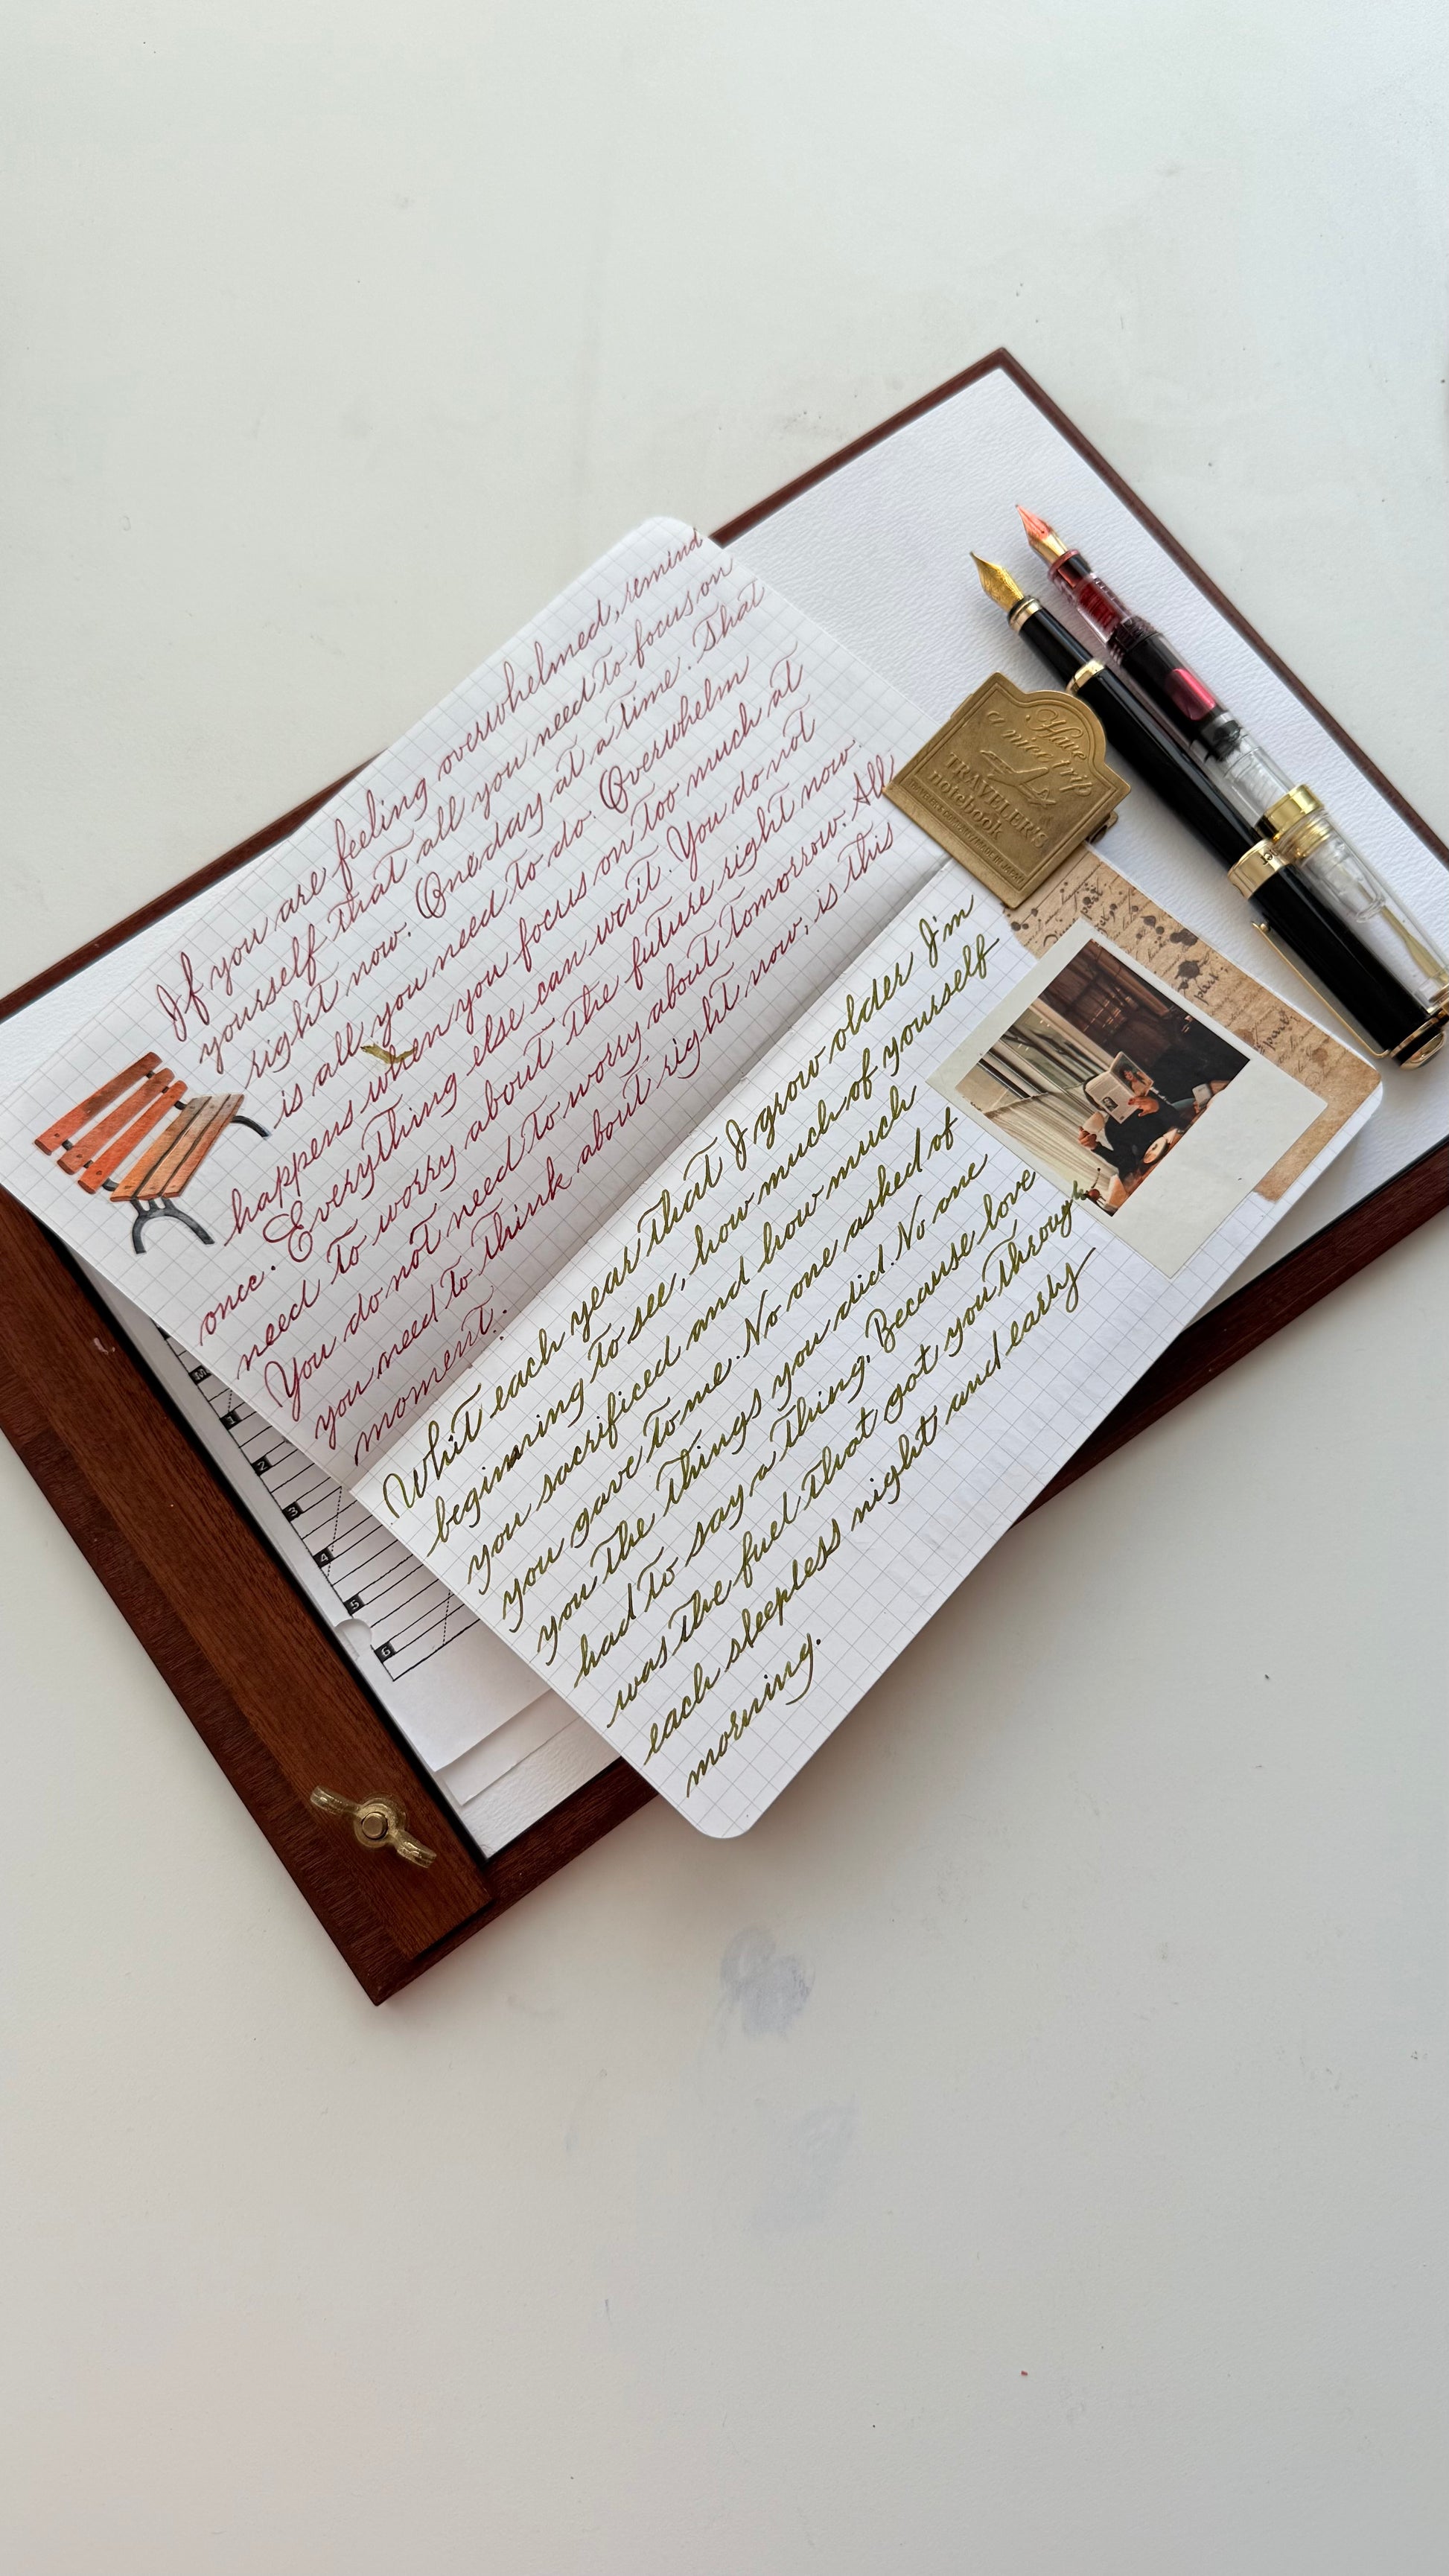 If you are feeling overwhelmed, remind
yourself that all you need to focus on
right now. One day at a time. That
is all you need to do. Overwhelm
happens when you focus on too much at
once. Everything else can wait. You do not
need to worry about the future right now.
You do not need to worry about tomorrow. All
you need to think about right now, is this
moment.
Whit each year that I grow older I'm
beginning to see, how much of yourself
you sacrificed and how much
you gave to me. No one asked of
you the things you did. No one
had to say a thing, Because love
was the fuel that got you through
each sleepless night and early
morning.
Have
a nice trip
TRAVELER'S
notebook
TRAVELER'S COMPANY MADE IN JAPAN
M
1
2
3
4
5
6